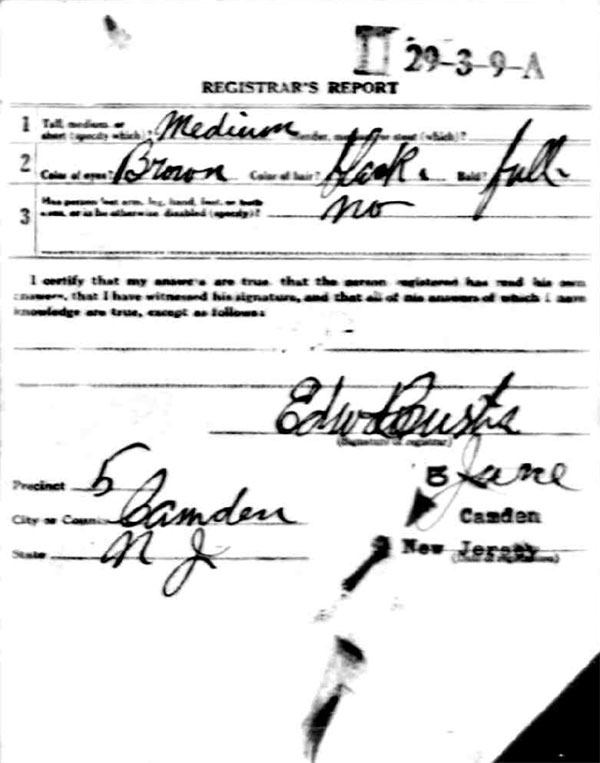 29-3-9-A
REGISTRAR'S REPORT
1 Tall, medium, or short (specify which)? Medium Slender, medium, or stout (which)?
2 Color of eyes? Brown Color of hair? black. Bald? full-
3 Has person lost arm, leg, hand, foot, or both
eyes, or is he otherwise disabled (specify)? no
I certify that my answers are true, that the person registered has read his own
answers, that I have witnessed his signature, and that all of his answers of which I have
knowledge are true, except as follows:
Edw
(Signature of registrar)
Precinct 5 5 June
City or County Camden Camden
State N J New Jersey
(Date of registration)